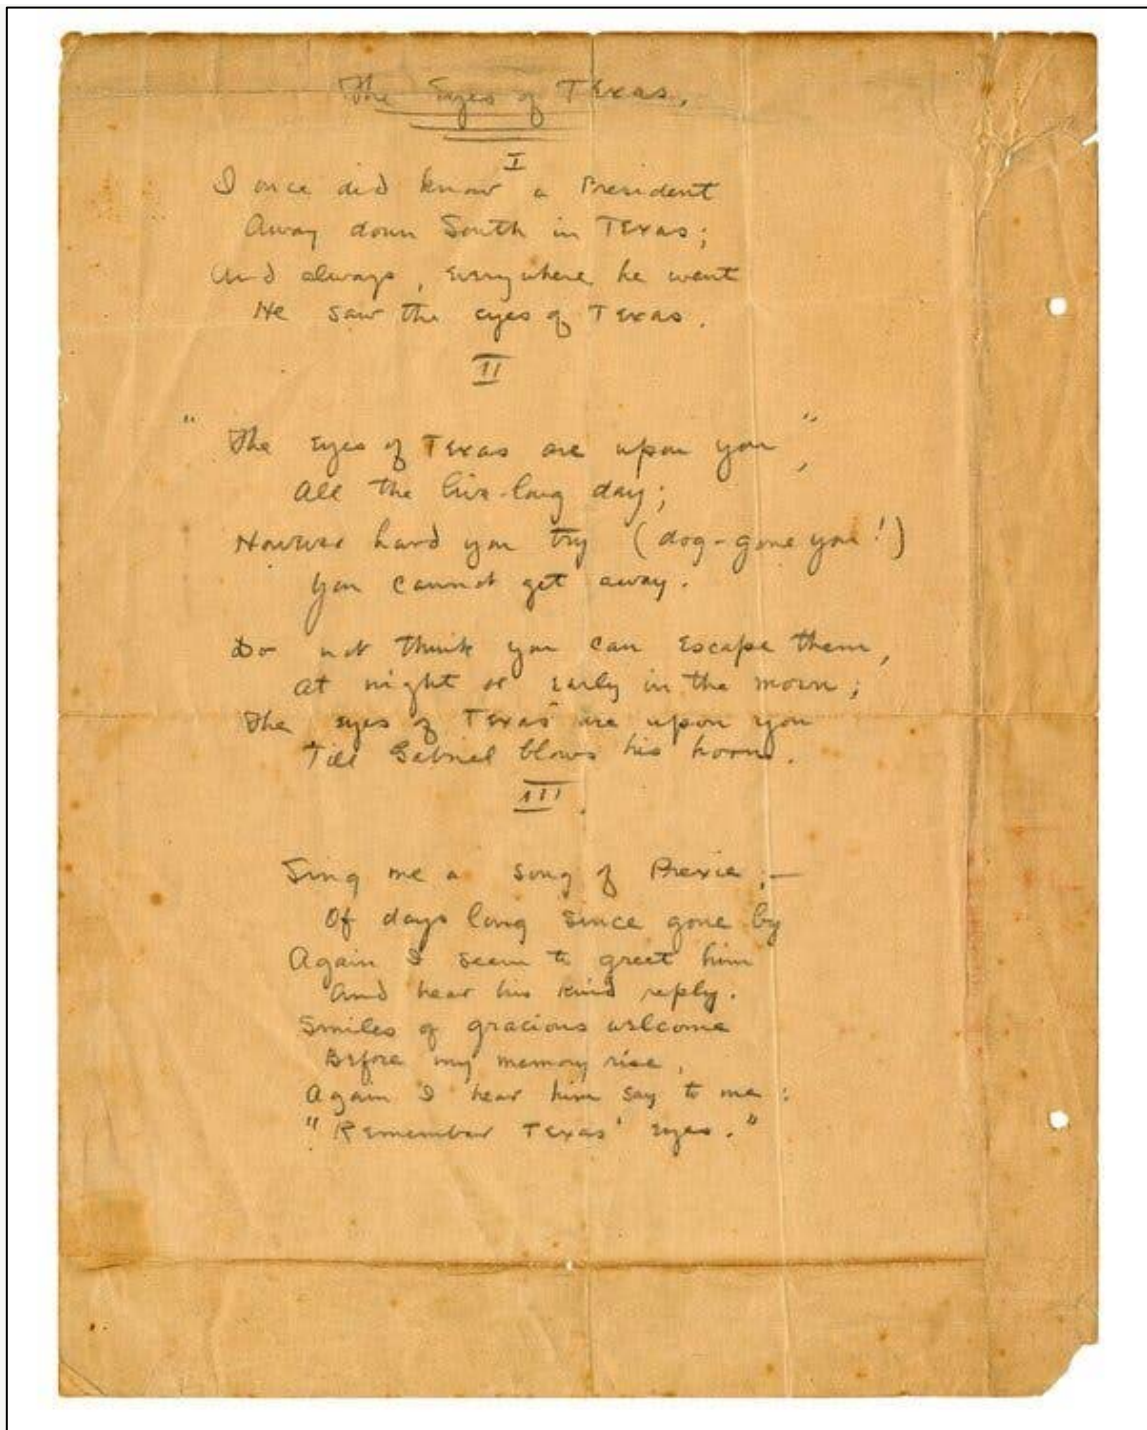 The Eyes of Texas.
I
I once did know a President
Away down South in Texas;
And always, everywhere he went
He saw the eyes of Texas.
II
"The Eyes of Texas are upon you",
All the live-long day;
However hard you try (dog-gone you!)
You cannot get away.
Do not think you can escape them,
At night or early in the morn;
The eyes of Texas are upon you
Till Gabriel blows his horn.
III.
Sing me a song of Prexie;—
Of days long since gone by
Again I seem to greet him
And hear his kind reply.
Smiles of gracious welcome
Before my memory rise,
Again I hear him say to me:
"Remember Texas' Eyes."